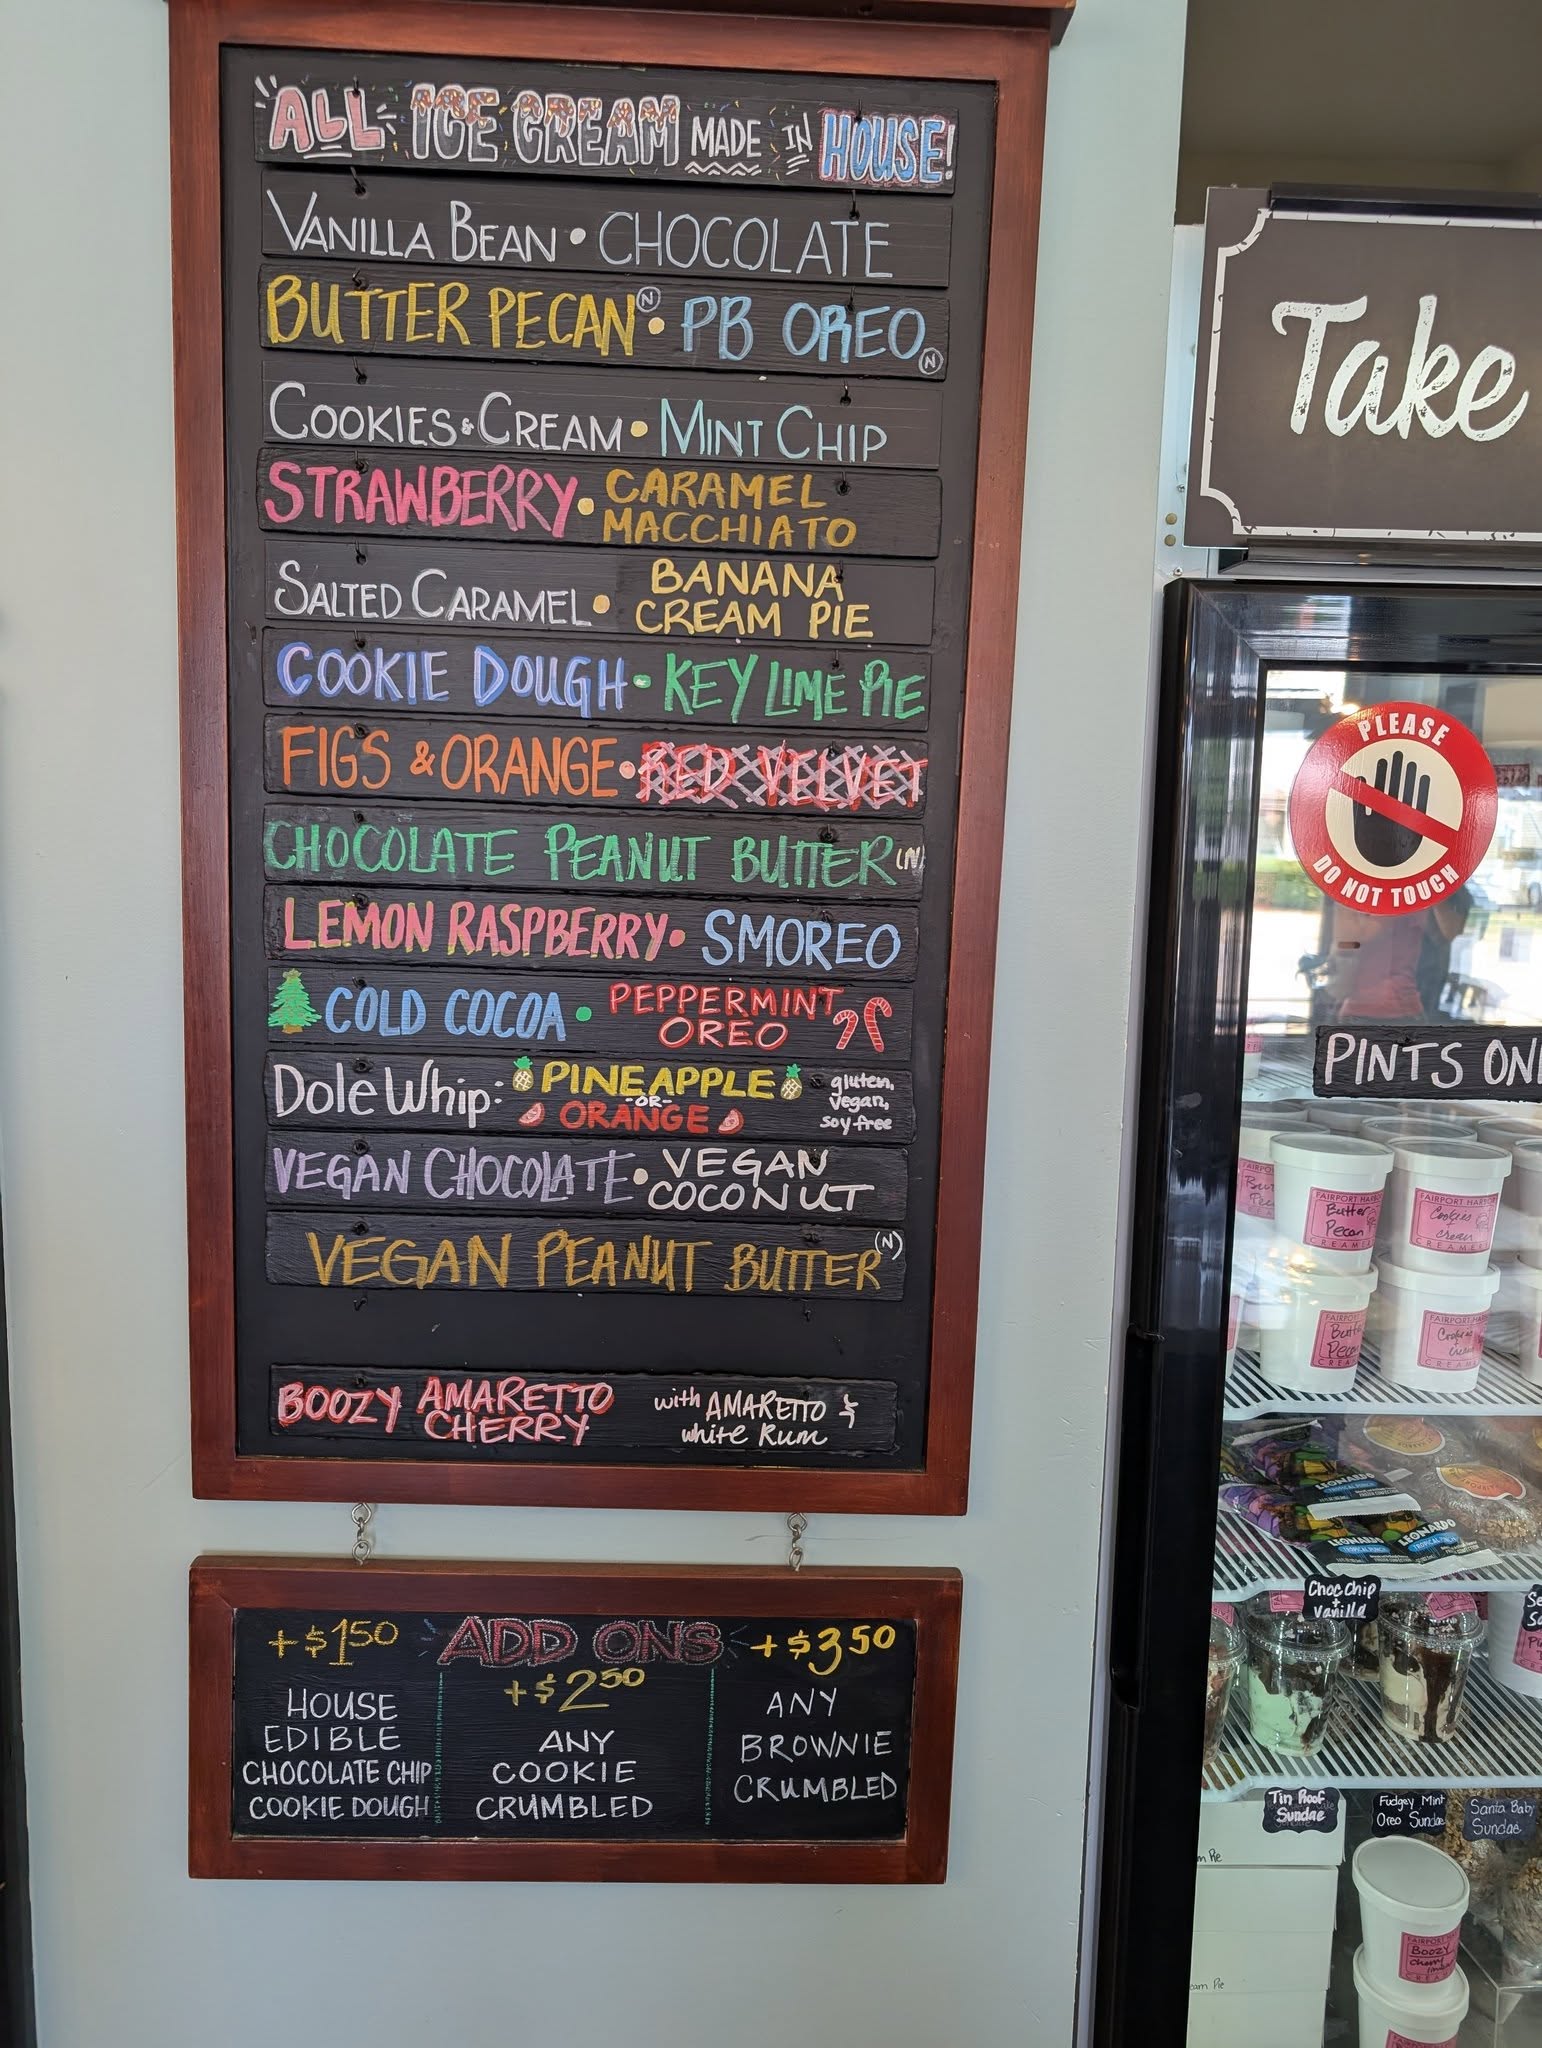 ALL ICE CREAM MADE IN HOUSE!
VANILLA BEAN • CHOCOLATE
BUTTER PECAN (N) • PB OREO (N)
COOKIES & CREAM • MINT CHIP
STRAWBERRY • CARAMEL MACCHIATO
SALTED CARAMEL • BANANA CREAM PIE
COOKIE DOUGH • KEY LIME PIE
FIGS & ORANGE • RED VELVET
CHOCOLATE PEANUT BUTTER (N)
LEMON RASPBERRY • SMOREO
COLD COCOA • PEPPERMINT OREO
Dole Whip: PINEAPPLE -OR- ORANGE gluten, vegan, soy free
VEGAN CHOCOLATE • VEGAN COCONUT
VEGAN PEANUT BUTTER (N)
BOOZY AMARETTO CHERRY with AMARETTO & white Rum
ADD ONS
+$1.50
HOUSE
EDIBLE
CHOCOLATE CHIP
COOKIE DOUGH
+$2.50
ANY
COOKIE
CRUMBLED
+$3.50
ANY
BROWNIE
CRUMBLED
Take
PLEASE
DO NOT TOUCH
PINTS
Butter
Pecan
CREAME
Cookies
+
cream
CREAME
LEONARDO
TROPICAL PUNCH
LEONARDO
TROPICAL PUNCH
Choc Chip
+
Vanilla
Tin Roof
Sundae
Fudgey Mint
Oreo Sundae
Santa Baby
Sundae
Pie
Pie
Boozy